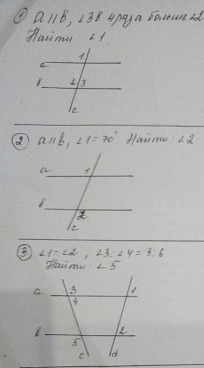 ① a||b, ∠3 в 4 раза больше ∠2
Найти ∠1
a 1
b 2 3
c
② a||b, ∠1=70° Найти: ∠2
a 1
b 2
c
③ ∠1=∠2, ∠3:∠4=3:6
Найти: ∠5
a 3 1
4
b 5 2
c d